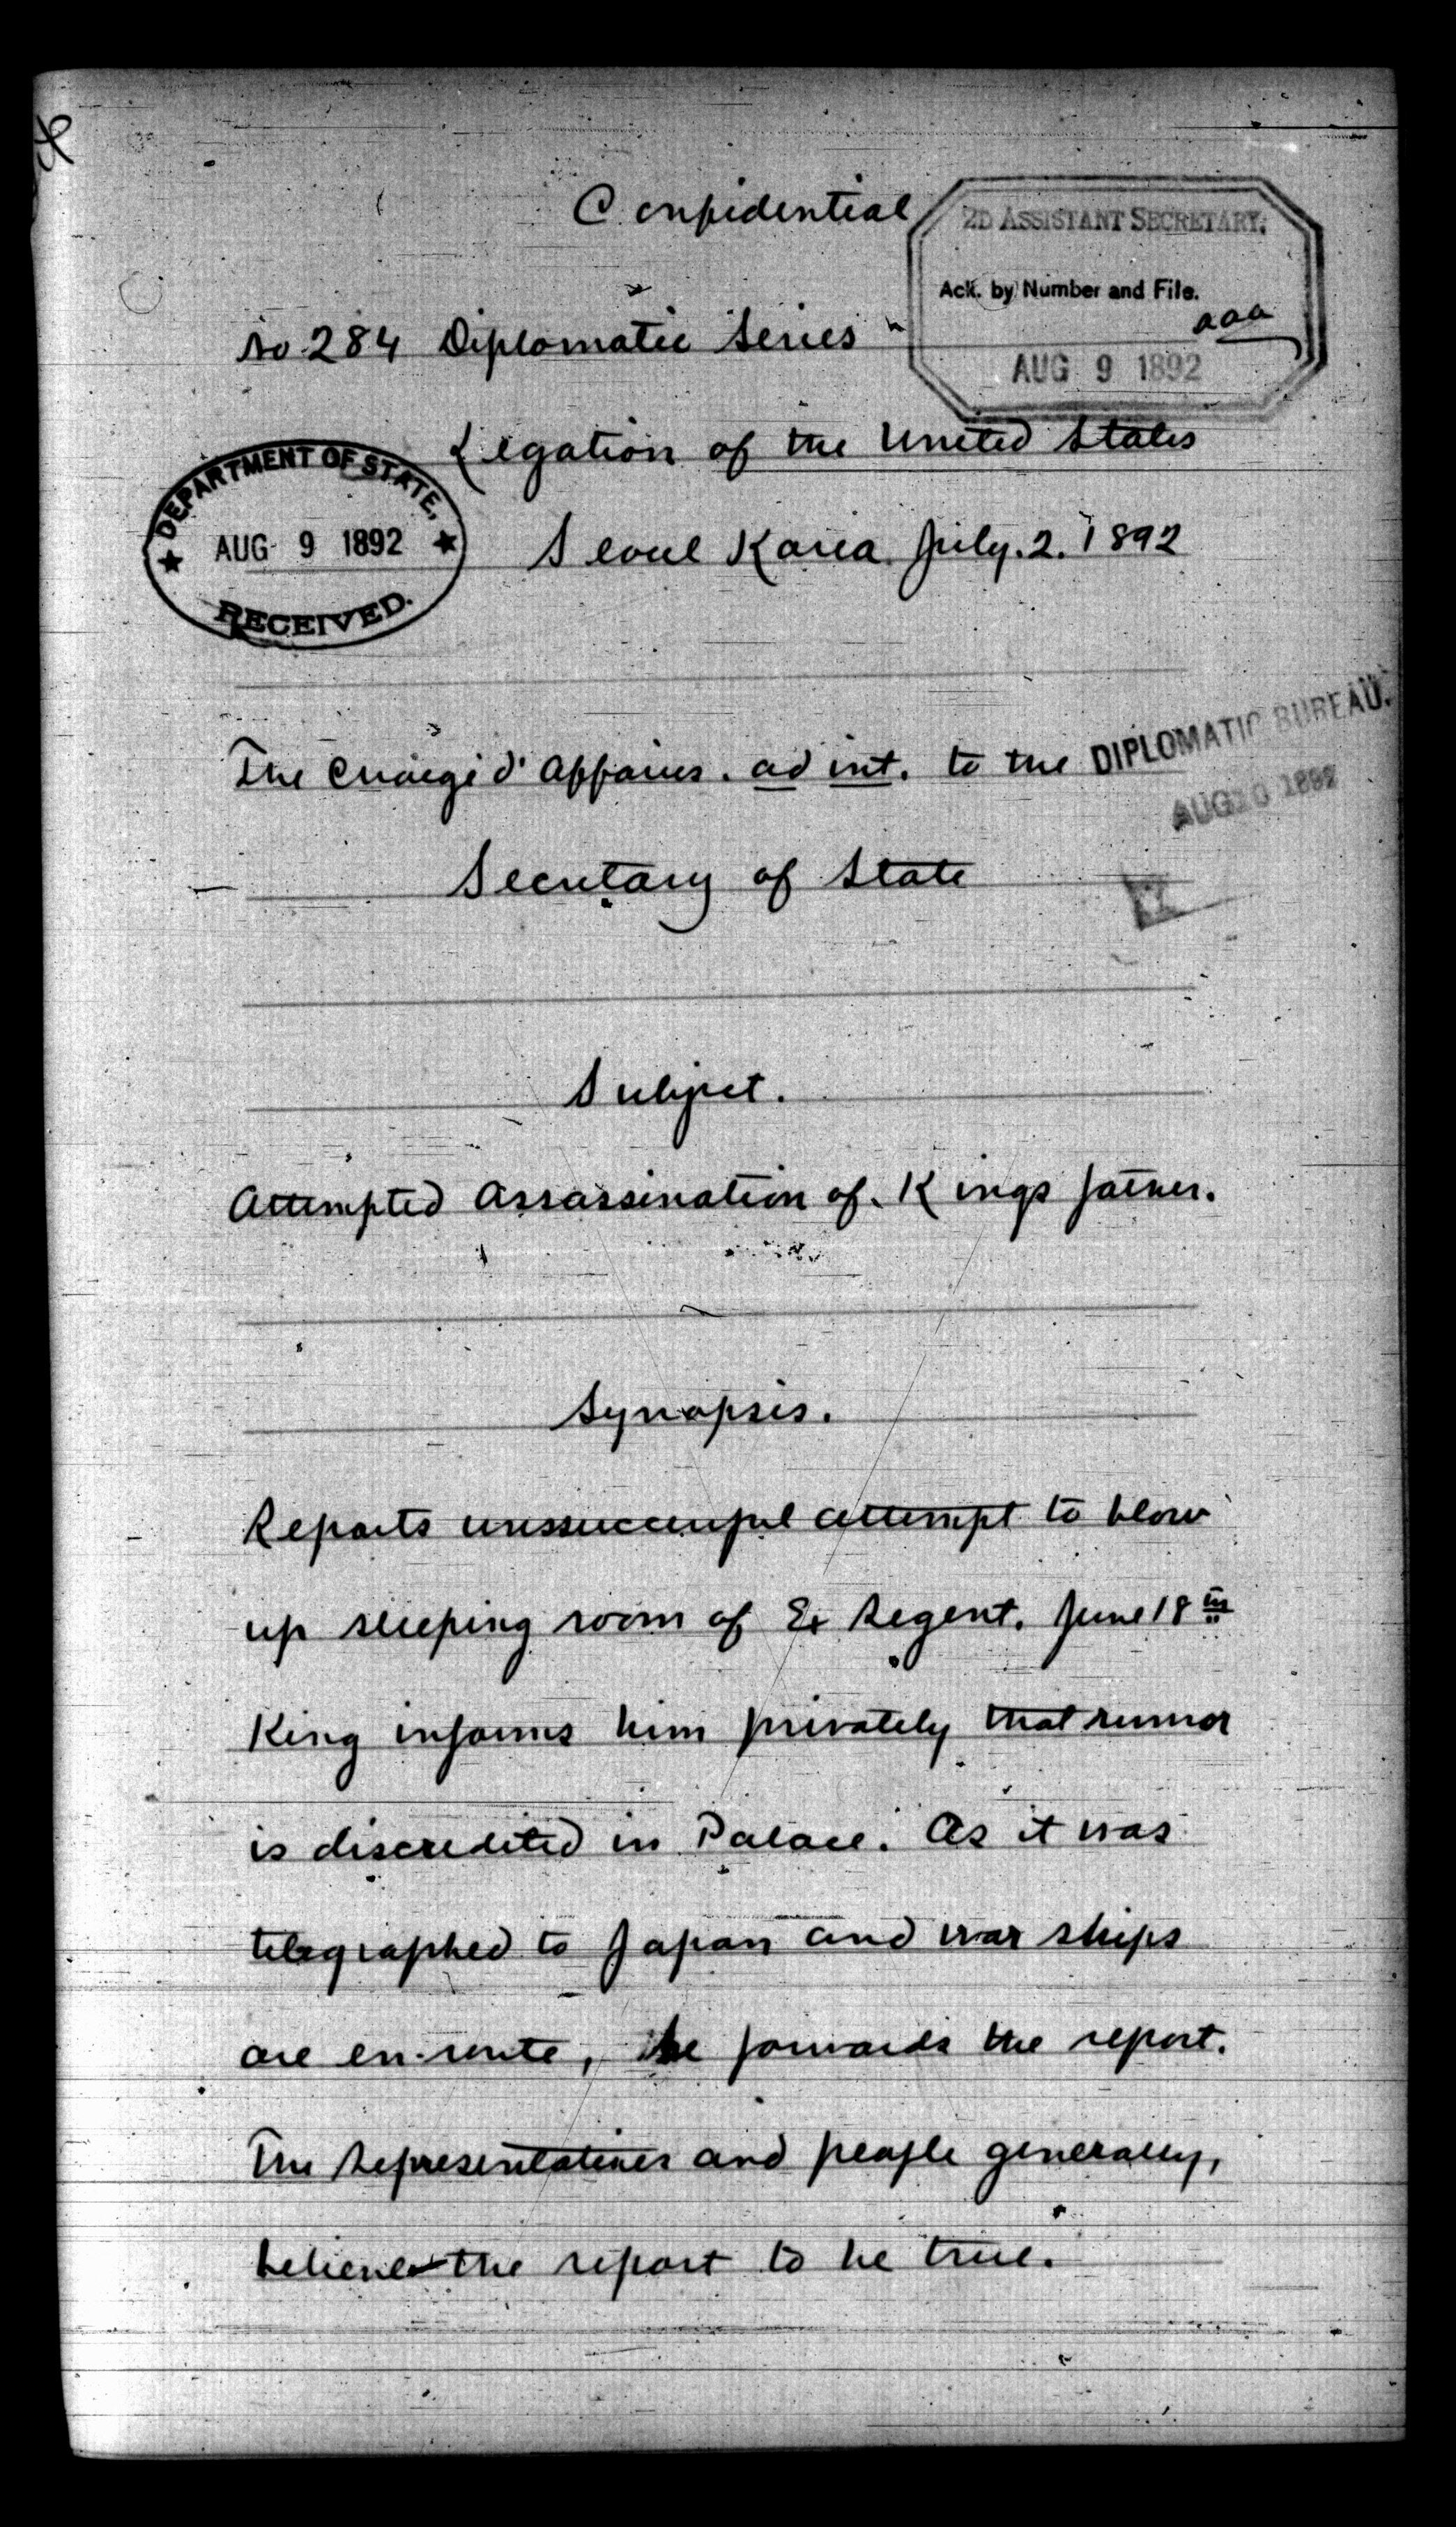 Confidential
2D ASSISTANT SECRETARY.
Ack. by Number and File.
aaa
AUG 9 1892
No 284 Diplomatic Series
Legation of the United States
DEPARTMENT OF STATE,
AUG 9 1892
RECEIVED.
Seoul Korea July. 2. 1892
The Chargé d' Affaires. ad int. to the
DIPLOMATIC BUREAU.
AUG 10 1892
Secretary of State
Subject.
Attempted Assassination of Kings father.
Synopsis.
Reports unssuccessful attempt to blow
up sleeping room of Ex Regent. June 18th
King informs him privately that rumor
is discredited in Palace. As it was
telegraphed to Japan and war ships
are en-route, he forwards the report.
The Representatives and people generally,
believe the report to be true.